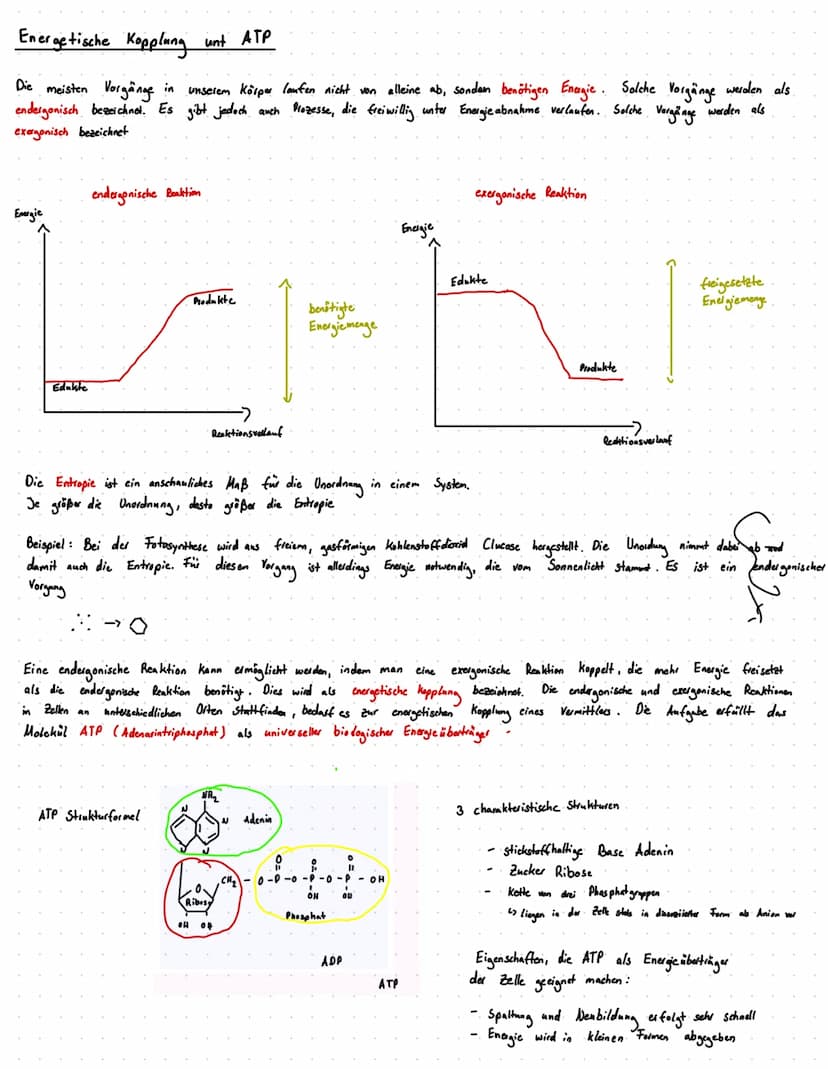 Energetische Kopplung unt ATP
Die meisten Vorgänge in unserem Körper laufen nicht von alleine ab, sondern benötigen Energie. Solche Vorgänge werden als
endergonisch bezeichnet. Es gibt jedoch auch Prozesse, die freiwillig unter Energieabnahme verlaufen. Solche Vorgänge werden als
exergonisch bezeichnet
endergonische Reaktion
exergonische Reaktion
Energie
Energie
Produkte
Edukte
benötigte
Energiemenge
Reaktionsverlauf
Edukte
Produkte
freigesetzte
Energiemenge
Reaktionsverlauf
Die Entropie ist ein anschauliches Maß für die Unordnung in einem System.
Je größer die Unordnung, desto größer die Entropie
Beispiel: Bei der Fotosynthese wird aus freiem, gasförmigen Kohlenstoffdioxid Glucose hergestellt. Die Unordnung nimmt dabei ab und
damit auch die Entropie. Für diesen Vorgang ist allerdings Energie notwendig, die vom Sonnenlicht stammt. Es ist ein endergonischer
Vorgang
Eine endergonische Reaktion kann ermöglicht werden, indem man eine exergonische Reaktion koppelt, die mehr Energie freisetzt
als die endergonische Reaktion benötigt. Dies wird als energetische Kopplung bezeichnet. Die endergonische und exergonische Reaktionen
in Zellen an unterschiedlichen Orten stattfinden, bedarf es zur energetischen Kopplung eines Vermittlers. Die Aufgabe erfüllt das
Molekül ATP (Adenosintriphosphat) als universeller biologischer Energieüberträger
ATP Strukturformel
NH2
N
N
N
N
Adenin
O
CH2
Ribose
OH OH
O O O
O-P-O-P-O-P-OH
OH OH
Phosphat
ADP
ATP
3 charakteristische Strukturen
- stickstoffhaltige Base Adenin
- Zucker Ribose
- Kette von drei Phosphatgruppen
↳ liegen in der Zelle stets in dissoziierter Form als Anion vor
Eigenschaften, die ATP als Energieüberträger
der Zelle geeignet machen:
- Spaltung und Neubildung erfolgt sehr schnell
- Energie wird in kleinen Formen abgegeben